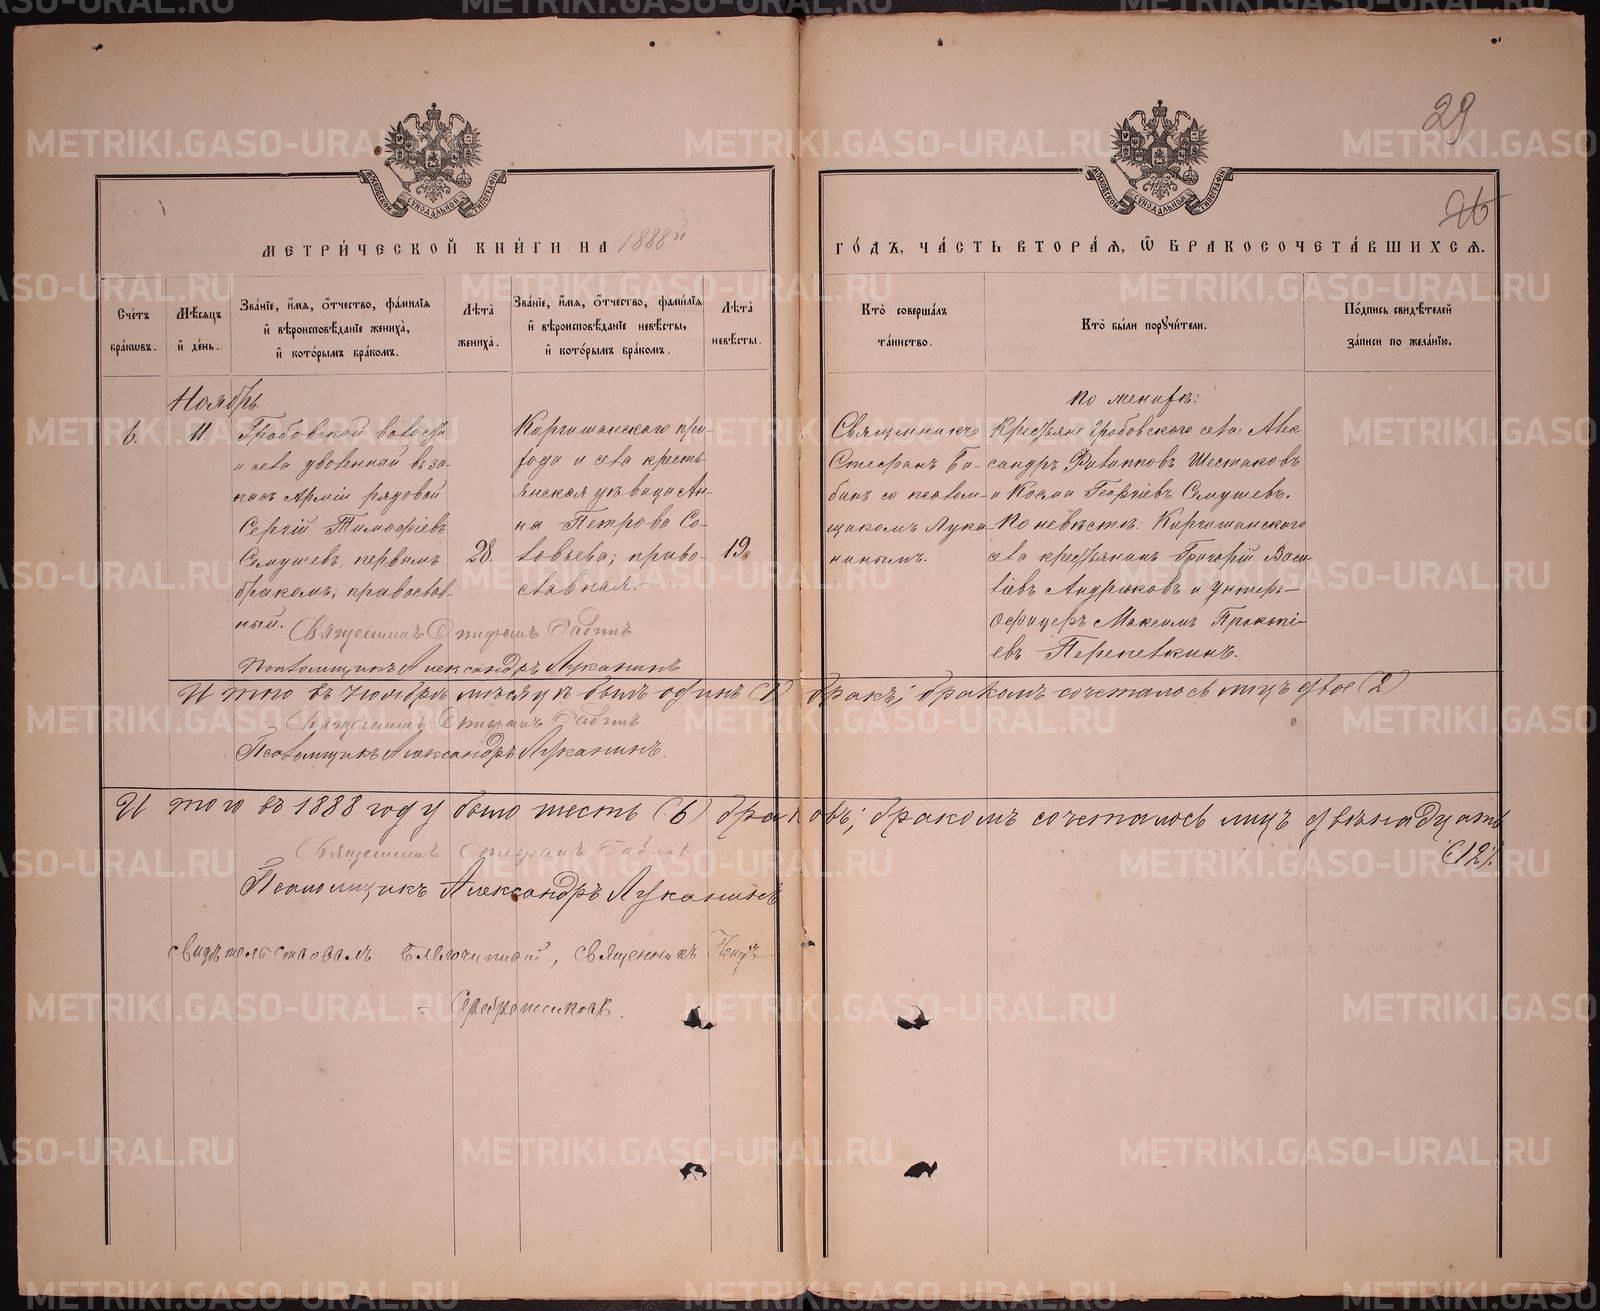 29
26
МЕТРИ́ЧЕСКОЙ КНИ́ГИ НА 1888й
ГО́ДЪ, ЧА́СТЬ ВТОРА́Ѧ, Ѽ БРАКОСОЧЕТА́ВШИХСѦ.
Сче́тъ бра́кѡвъ.
Мѣ́сѧцъ и҆ де́нь.
Зва́нїе, и҆́мѧ, ѻ҆́тчество, фамилїѧ
и҆ вѣроисповѣ́данїе жениха̀,
и҆ кото́рымъ бра́комъ.
Лѣ́та жениха̀.
Зва́нїе, и҆́мѧ, ѻ҆́тчество, фами́лїѧ
и҆ вѣроисповѣ́данїе невѣ́сты,
и҆ кото́рымъ бра́комъ.
Лѣ́та невѣ́сты.
Кто̀ соверша́лъ та́инство.
Кто̀ бы́ли порꙋчи́тели.
По́дпись свидѣ́телей
за́писи по жела́нїю.
Ноябрь.
6.
11.
Гробовской волости
и села уволенной въ за-
пасъ Арміи рядовой
Сергій Тимофіевъ
Смушевъ, первымъ
бракомъ; православ-
ный.
28.
Киргишанского при-
хода и села кресть
янская дѣвица Ан-
на Петрова Со-
ловьева; право-
славная.
19.
Священникъ
Стефанъ Ба-
бинъ со псалом-
щикомъ Лука-
нинымъ.
По женихѣ:
Крестьяне Гробовского села: Алек
сандръ Филипповъ Шестаковъ
и Козма Георгіевъ Смушевъ.
По невѣстѣ: Киргишанского
села крестьянинъ Григорій Васи
ліевъ Андрюковъ и унтеръ-
Офицеръ Максимъ Прокопі-
евъ Перепелкинъ.
Священникъ Стефанъ Бабинъ
Псаломщикъ Александръ Луканинъ
Итого въ Ноябрѣ мѣсяцѣ былъ одинъ (1) бракъ; бракомъ сочеталось лицъ двое (2)
Священникъ Стефанъ Бабинъ
Псаломщикъ Александръ Луканинъ.
Итого въ 1888 году было шесть (6) браковъ; бракомъ сочеталось лицъ двѣнадцать
(12).
Священникъ Стефанъ Бабинъ
Псаломщикъ Александръ Луканинъ
свидѣтельствовалъ благочинный, священникъ
Серебренниковъ.
METRIKI.GASO-URAL.RU